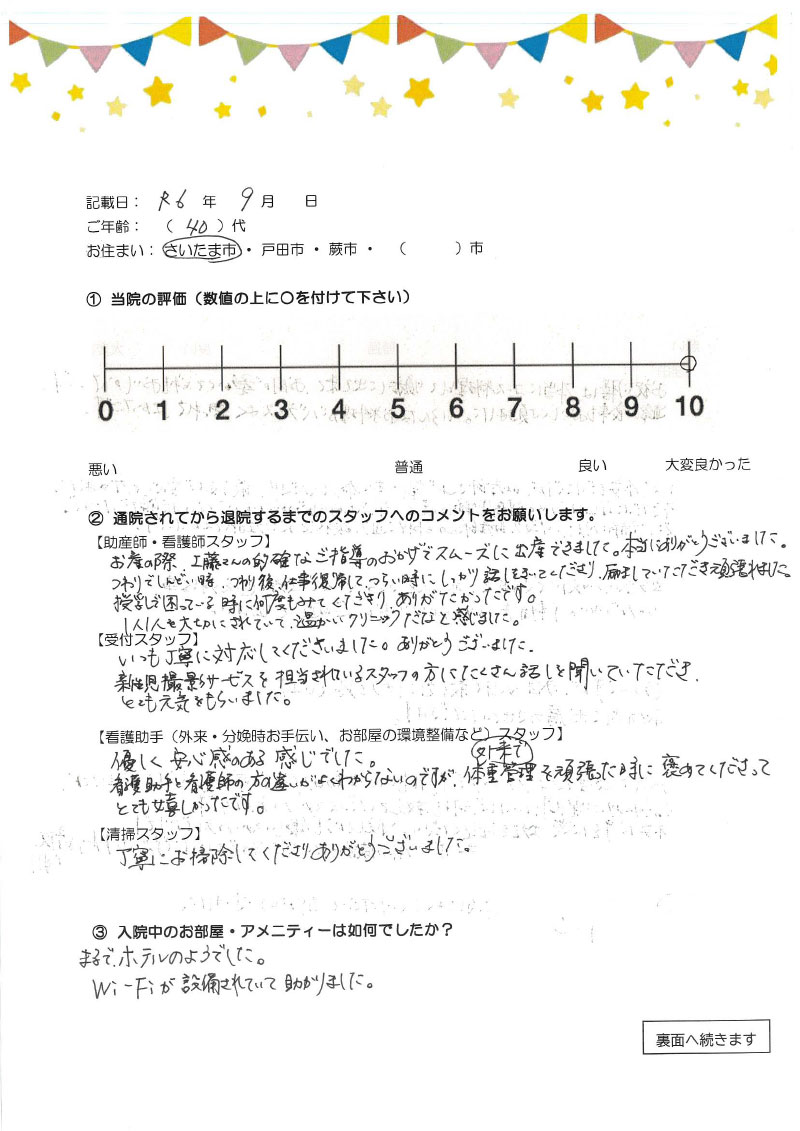 記載日： R6 年 9月 日
ご年齢： （ 40 ）代
お住まい： さいたま市 ・ 戸田市 ・ 蕨市 ・ （ ）市
① 当院の評価（数値の上に〇を付けて下さい）
0 1 2 3 4 5 6 7 8 9 10
悪い 普通 良い 大変良かった
② 通院されてから退院するまでのスタッフへのコメントをお願いします。
【助産師・看護師スタッフ】
お産の際、工藤さんの的確なご指導のおかげでスムーズに出産できました。本当にありがとうございました。
つわりでしんどい時、つわり後、仕事復帰して、つらい時にしっかり話しをきいてくださり、励ましていただき頑張れました。
授乳で困っている時に何度もみてくださり、ありがたかったです。
1人1人を大切にされていて、温かいクリニックだなと感じました。
【受付スタッフ】
いつも丁寧に対応してくださいました。ありがとうございました。
新生児撮影サービスを担当されているスタッフの方にたくさん話しを聞いていただき、
とても元気をもらいました。
【看護助手（外来・分娩時お手伝い、お部屋の環境整備など）スタッフ】
優しく安心感のある感じでした。
看護助手と看護師の方の違いがよくわからないのですが、外来で体重管理を頑張った時に褒めてくださって
とても嬉しかったです。
【清掃スタッフ】
丁寧にお掃除してくださりありがとうございました。
③ 入院中のお部屋・アメニティーは如何でしたか？
まるで、ホテルのようでした。
Wi-Fiが設備されていて助かりました。
裏面へ続きます